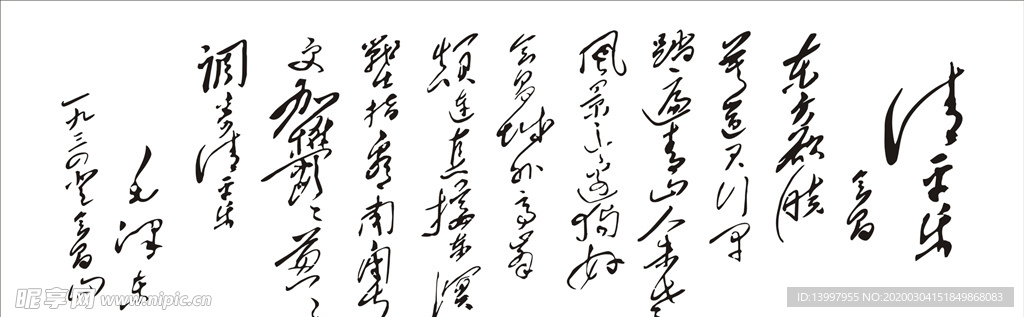 清平乐
会昌
东方欲晓
莫道君行早
踏遍青山人未老
风景这边独好
会昌城外高峰
颠连直接东溟
战士指看南粤
更加郁郁葱葱
调寄清平乐
毛泽东
一九三四登会昌山
昵享网 www.nipic.cn
ID:13997955 NO:20200304151849868083